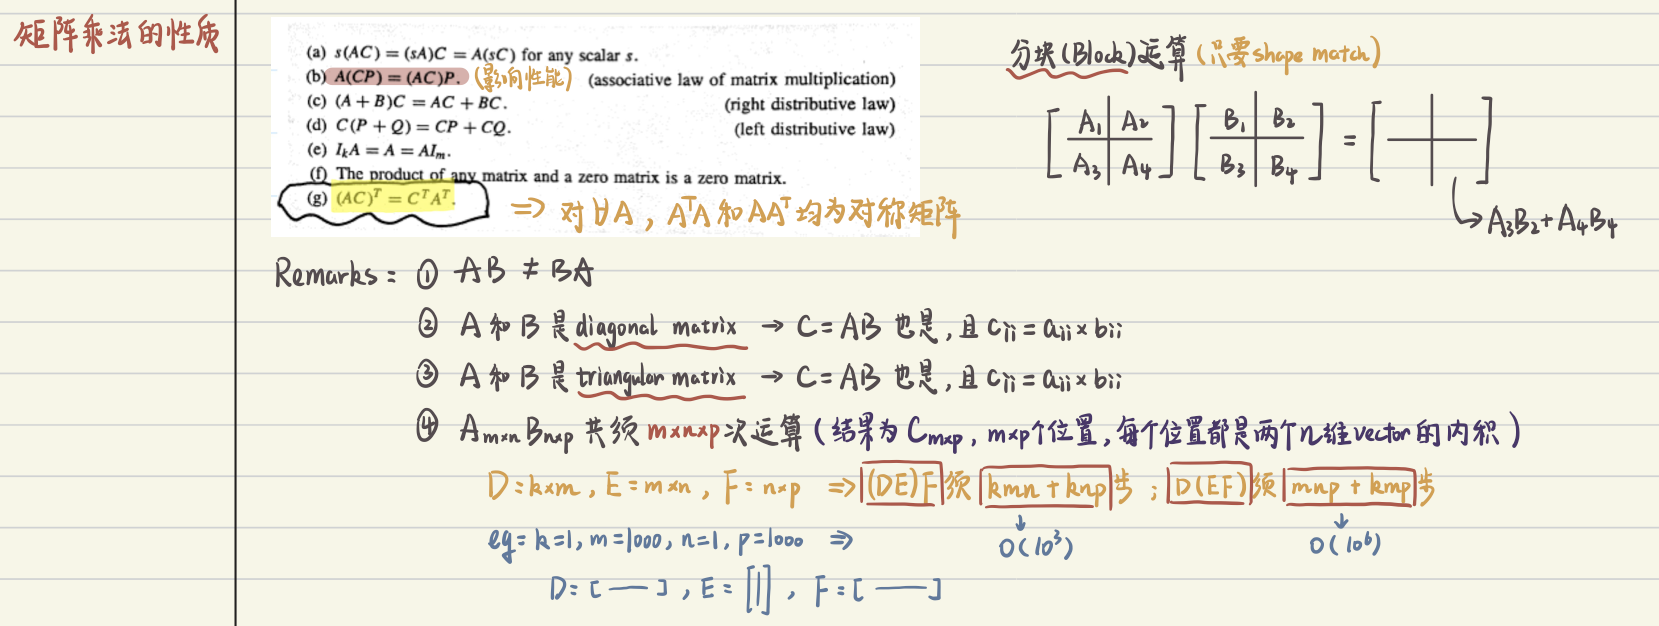 矩阵乘法的性质
(a) s(AC) = (sA)C = A(sC) for any scalar s.
(b) A(CP) = (AC)P. (影响性能) (associative law of matrix multiplication)
(c) (A + B)C = AC + BC. (right distributive law)
(d) C(P + Q) = CP + CQ. (left distributive law)
(e) IₖA = A = AIₘ.
(f) The product of any matrix and a zero matrix is a zero matrix.
(g) (AC)ᵀ = CᵀAᵀ. ⇒ 对∀A, AᵀA 和 AAᵀ 均为对称矩阵
分块(Block)运算(只要shape match)
[A₁ A₂ [B₁ B₂ = [ ]
A₃ A₄] B₃ B₄]
→ A₃B₂ + A₄B₄
Remarks: ① AB ≠ BA
② A 和 B 是 diagonal matrix → C = AB 也是, 且 cᵢᵢ = aᵢᵢ × bᵢᵢ
③ A 和 B 是 triangular matrix → C = AB 也是, 且 cᵢᵢ = aᵢᵢ × bᵢᵢ
④ Aₘₓₙ Bₙₓₚ 共须 m×n×p 次运算 (结果为 Cₘₓₚ, m×p个位置, 每个位置都是两个n维vector的内积)
D: k×m, E = m×n, F = n×p ⇒ (DE)F 须 kmn + knp 步 ; D(EF) 须 mnp + kmp 步
eg: k=1, m=1000, n=1, p=1000 ⇒ ↓ O(10³) ↓ O(10⁶)
D = [ — ], E = [ | ], F = [ — ]